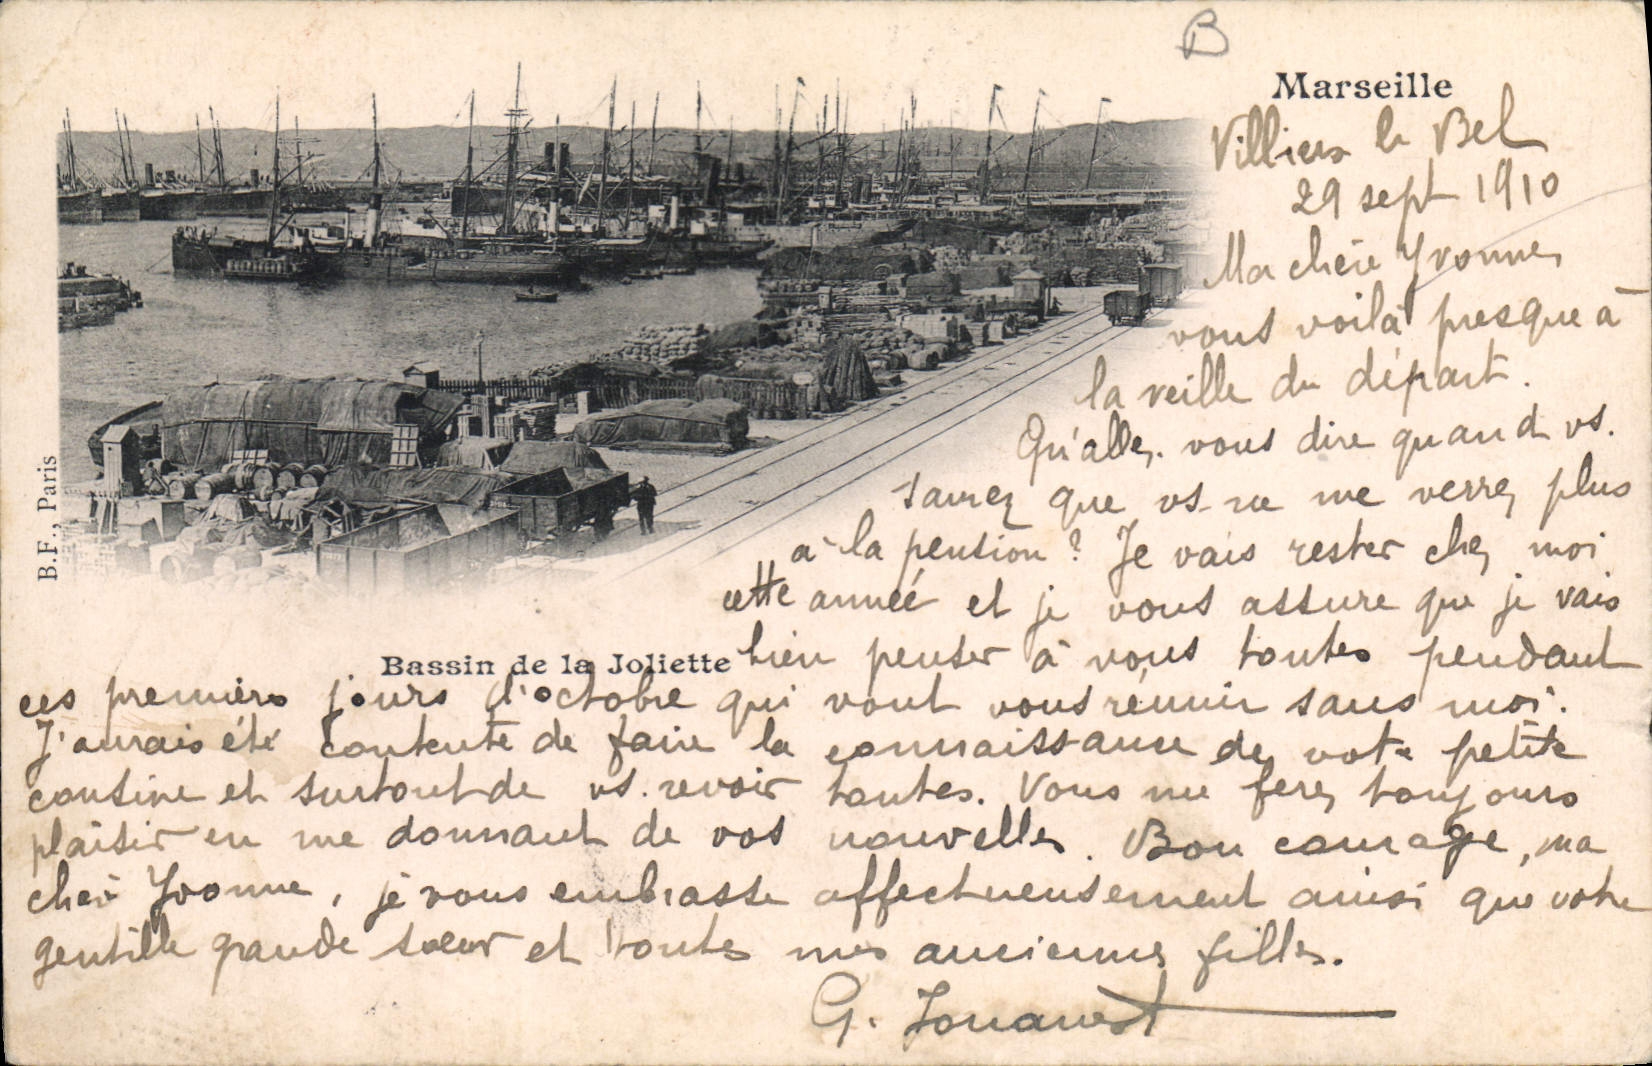 B
Marseille
Villiers le Bel
29 sept 1910
Ma chère Yvonne,
vous voilà presque à
la veille du départ.
Qu'allez-vous dire quand vs.
saurez que vs-ne me verrez plus
à la pension ? Je vais rester chez moi
cette année et je vous assure que je vais
bien penser à vous toutes pendant
ces premiers jours d'octobre qui vont vous réunir sans moi.
J'aurais été contente de faire la connaissance de votre petite
cousine et surtout de vs. revoir toutes. Vous me ferez toujours
plaisir en me donnant de vos nouvelles. Bon courage, ma
chère Yvonne, je vous embrasse affectueusement ainsi que votre
gentille grande sœur et toutes mes anciennes filles.
G. Jouanest
Bassin de la Joliette
B.F., Paris